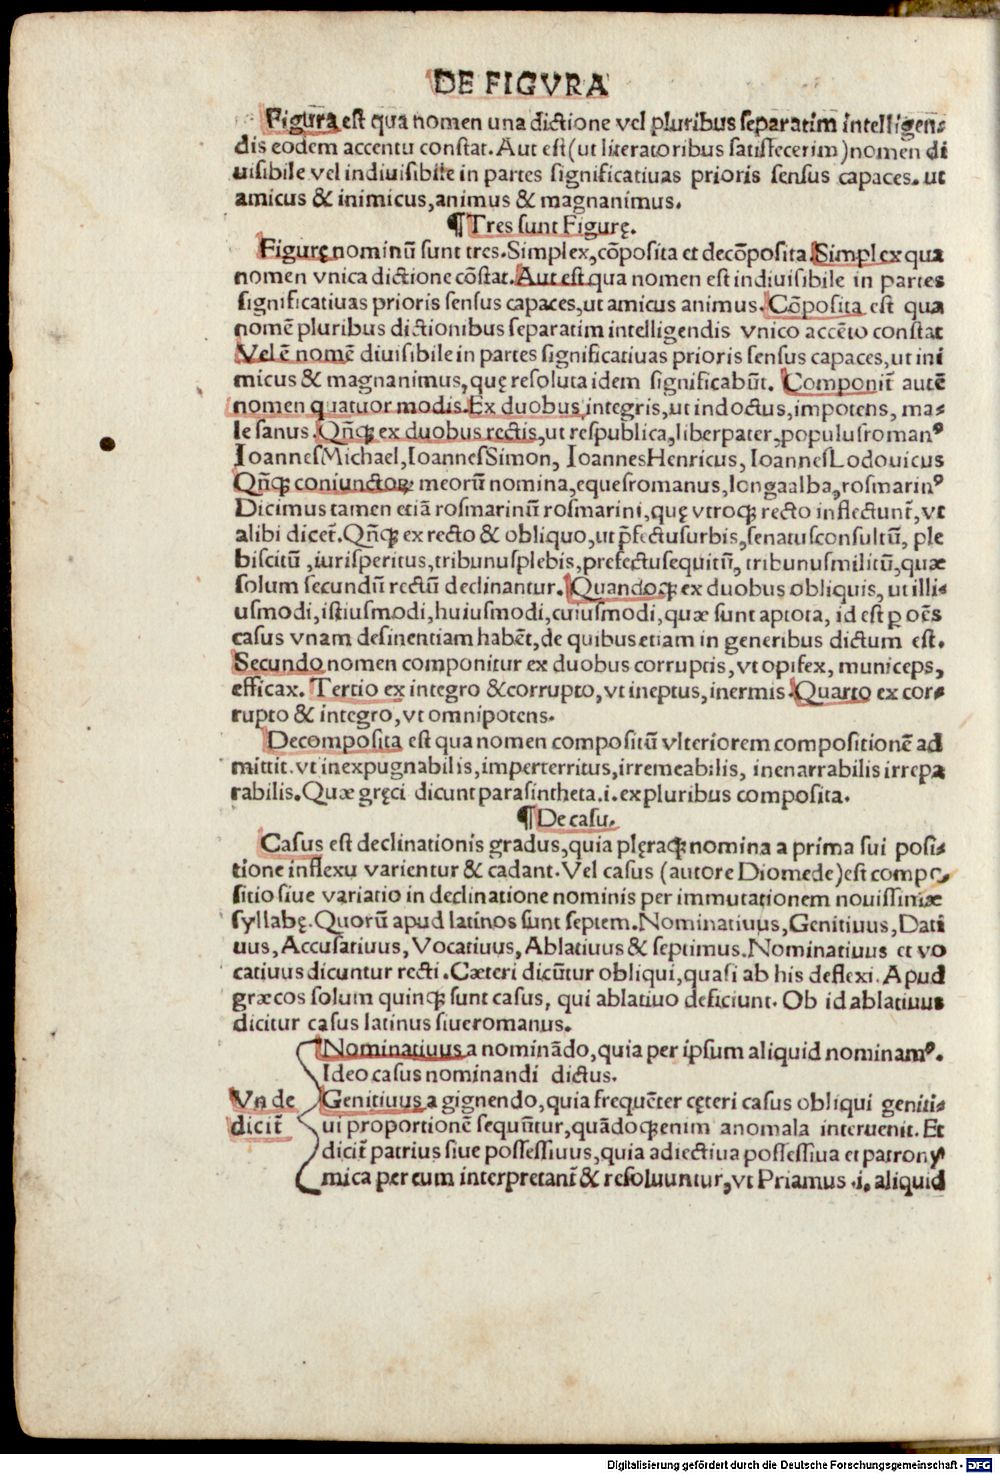 DE FIGVRA
Figura est qua nomen una dictione vel pluribus separatim intelligen⸗
dis eodem accentu constat. Aut est (ut literatoribus satisfecerim) nomen di
uisibile vel indiuisibile in partes significatiuas prioris sensus capaces. ut
amicus & inimicus, animus & magnanimus.
¶ Tres sunt Figurę.
Figurę nominū sunt tres. Simplex, cōposita et decōposita. Simplex qua
nomen vnica dictione cōstat. Aut est qua nomen est indiuisibile in partes
significatiuas prioris sensus capaces, ut amicus animus. Cōposita est qua
nomē pluribus dictionibus separatim intelligendis vnico accēto constat
Vel ē nomē diuisibile in partes significatiuas prioris sensus capaces, ut ini
micus & magnanimus, quę resoluta idem significabūt. Componit̄ autē
nomen quatuor modis. Ex duobus integris, ut indoctus, impotens, ma⸗
le sanus. Qñqꝫ ex duobus rectis, ut respublica, liberpater, populusromanꝰ
IoannesMichael, IoannesSimon, IoannesHenricus, IoannesLodouicus
Qñqꝫ coniunctoꝝ meorū nomina, equesromanus, longaalba, rosmarinꝰ
Dicimus tamen etiā rosmarinū rosmarini, quę vtroqꝫ recto inflectunt̄, vt
alibi dicet̄. Qñqꝫ ex recto & obliquo, ut p̄fectusurbis, senatusconsultū, ple
biscitū, iurisperitus, tribunusplebis, prefectusequitū, tribunusmilitū, quæ
solum secundū rectū declinantur. Quandoqꝫ ex duobus obliquis, ut illi⸗
usmodi, istiusmodi, huiusmodi, cuiusmodi, quæ sunt aptota, id est ꝑ oēs
casus vnam desinentiam habēt, de quibus etiam in generibus dictum est.
Secundo nomen componitur ex duobus corruptis, vt opifex, municeps,
efficax. Tertio ex integro & corrupto, vt ineptus, inermis. Quarto ex cor⸗
rupto & integro, vt omnipotens.
Decomposita est qua nomen compositū vlteriorem compositionē ad
mittit. vt inexpugnabilis, imperterritus, irremeabilis, inenarrabilis irrepa
rabilis. Quæ gręci dicunt parasintheta .i. ex pluribus composita.
¶ De casu.
Casus est declinationis gradus, quia plęraqꝫ nomina a prima sui posi⸗
tione inflexu varientur & cadant. Vel casus (autore Diomede) est compo⸗
sitio siue variatio in declinatione nominis per immutationem nouissimæ
syllabę. Quorū apud latinos sunt septem. Nominatiuus, Genitiuus, Dati
uus, Accusatiuus, Vocatiuus, Ablatiuus & septimus. Nominatiuus et vo
catiuus dicuntur recti. Cæteri dicūtur obliqui, quasi ab his deflexi. Apud
græcos solum quinqꝫ sunt casus, qui ablatiuo deficiunt. Ob id ablatiuus
dicitur casus latinus siue romanus.
Nominatiuus a nominādo, quia per ipsum aliquid nominamꝰ.
Ideo casus nominandi dictus.
Vnde Genitiuus a gignendo, quia frequēter cęteri casus obliqui geniti⸗
dicit̄ ui proportionē sequūtur, quādoqꝫ enim anomala interuenit. Et
dicit̄ patrius siue possessiuus, quia adiectiua possessiua et patrony
mica per eum interpretant̄ & resoluuntur, vt Priamus .i. aliquid
Digitalisierung gefördert durch die Deutsche Forschungsgemeinschaft - DFG